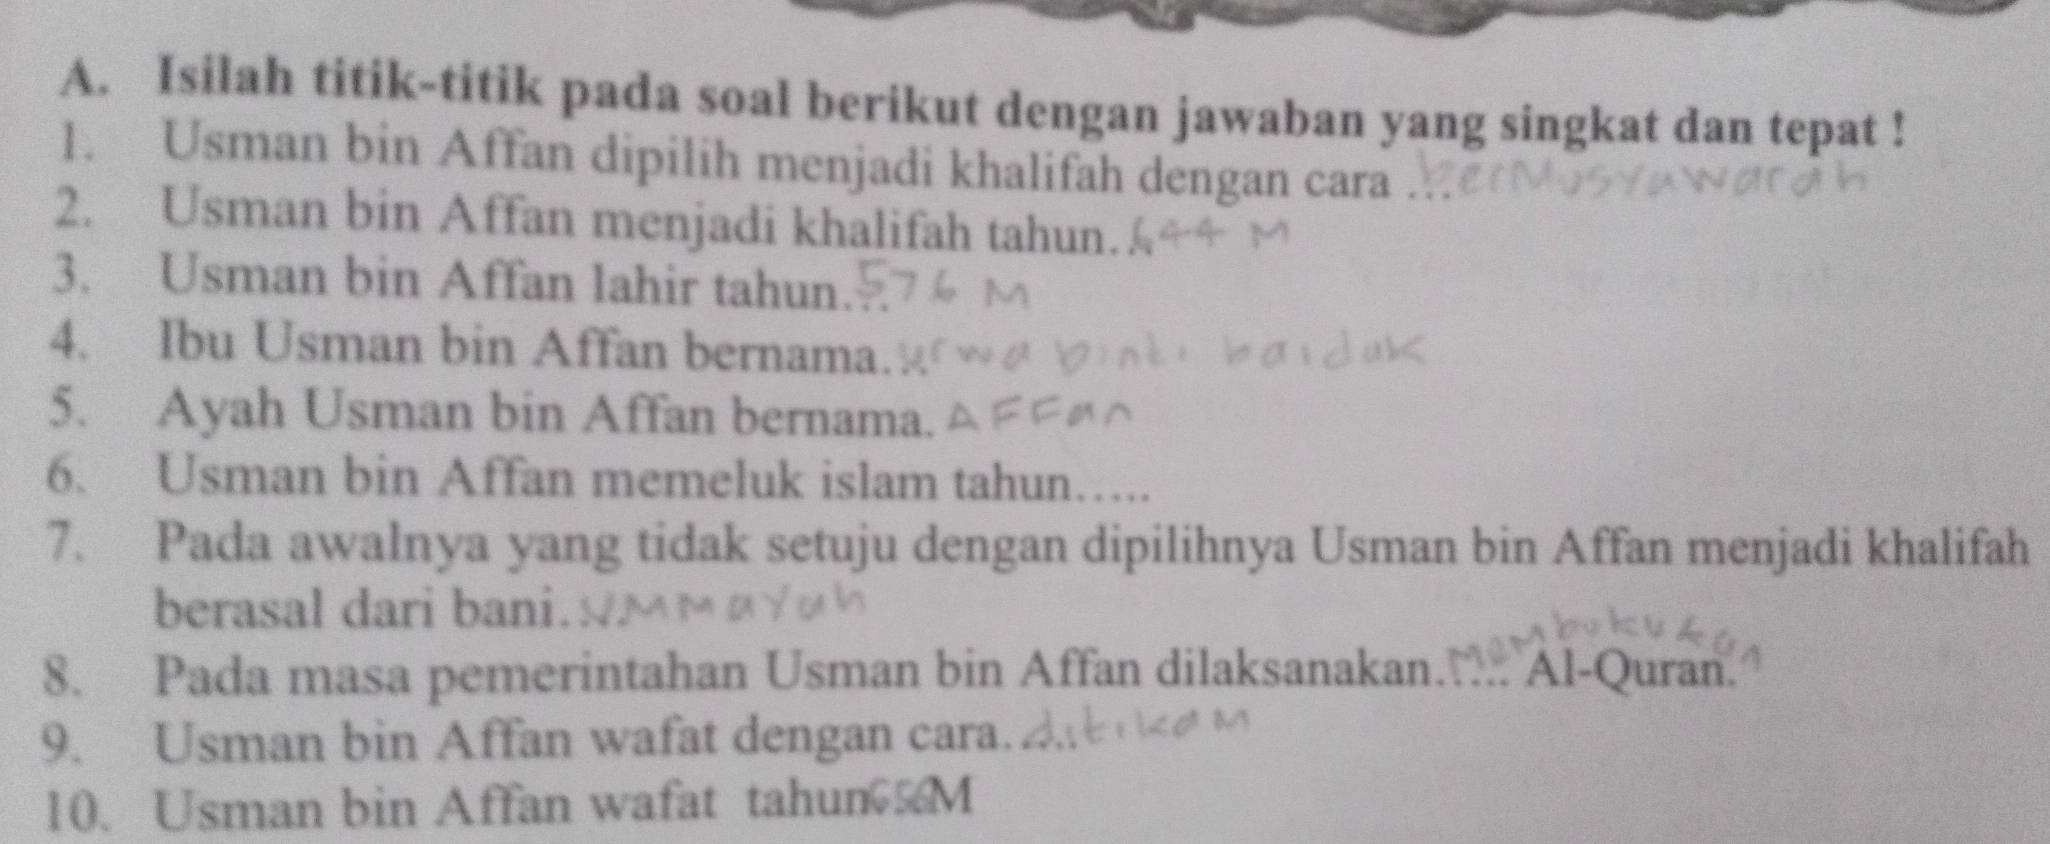 A. Isilah titik-titik pada soal berikut dengan jawaban yang singkat dan tepat !
1. Usman bin Affan dipilih menjadi khalifah dengan cara ... berMusyawarah
2. Usman bin Affan menjadi khalifah tahun... 644 M
3. Usman bin Affan lahir tahun... 576 M
4. Ibu Usman bin Affan bernama... urwa binti baidak
5. Ayah Usman bin Affan bernama. AFFan
6. Usman bin Affan memeluk islam tahun.....
7. Pada awalnya yang tidak setuju dengan dipilihnya Usman bin Affan menjadi khalifah
berasal dari bani... UMMayah
8. Pada masa pemerintahan Usman bin Affan dilaksanakan..... MeMbukukan Al-Quran.
9. Usman bin Affan wafat dengan cara.... ditikaM
10. Usman bin Affan wafat tahun 656 M